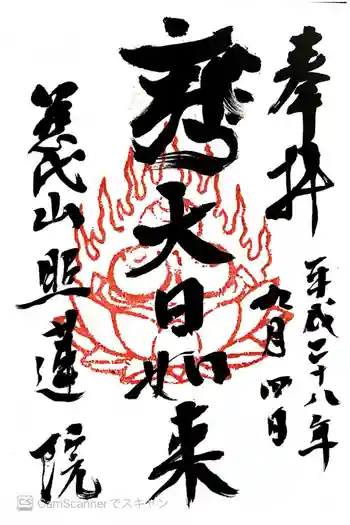 奉拝
平成二十八年
九月四日
大日如来
慈氏山照蓮院
CamScannerでスキャン